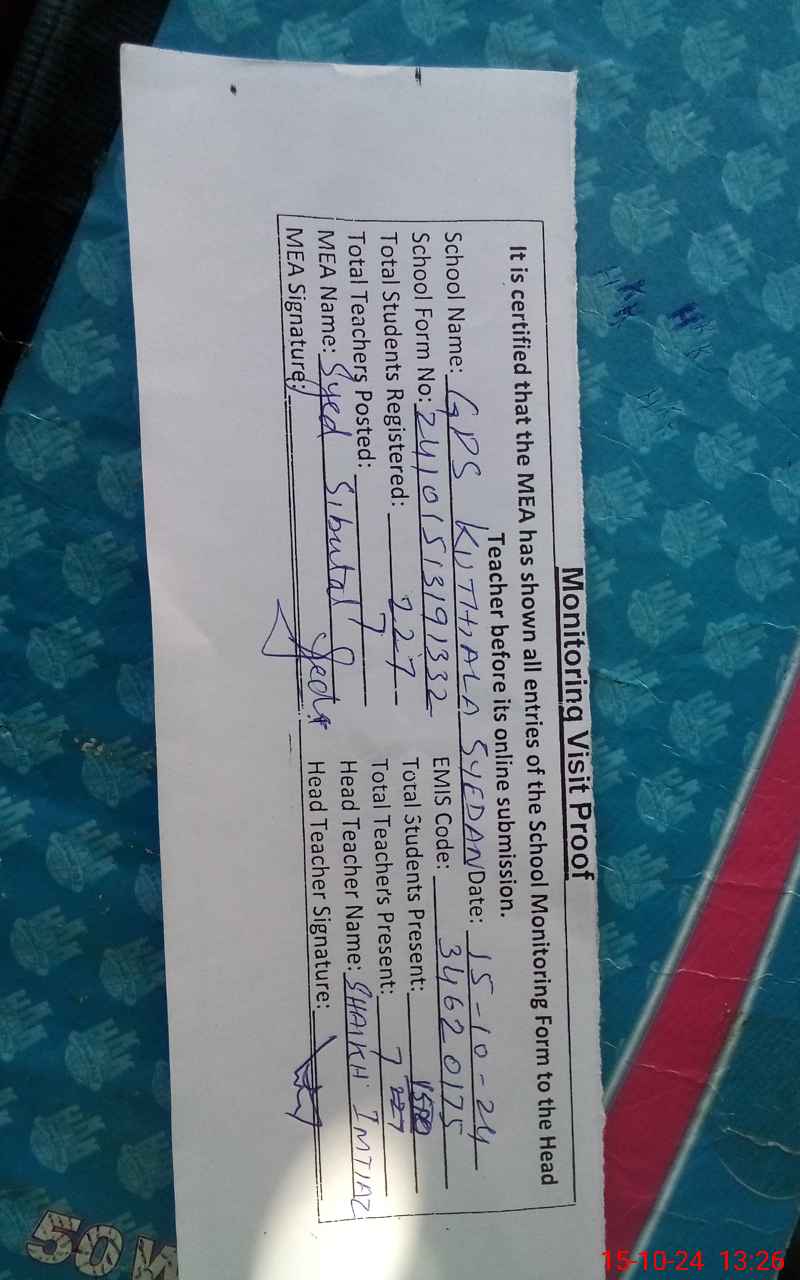 Monitoring Visit Proof
It is certified that the MEA has shown all entries of the School Monitoring Form to the Head
Teacher before its online submission.
School Name: GPS KUTHIALA SYEDAN Date: 15-10-24
School Form No: 24101513191332 EMIS Code: 34620175
Total Students Registered: 227 Total Students Present:
Total Teachers Posted: 7 Total Teacher's Present: 7
MEA Name: Syed Sibutal Head Teacher Name: SHAIKH IMTIAZ
MEA Signature: Head Teacher Signature:
50
15-10-24 13:26